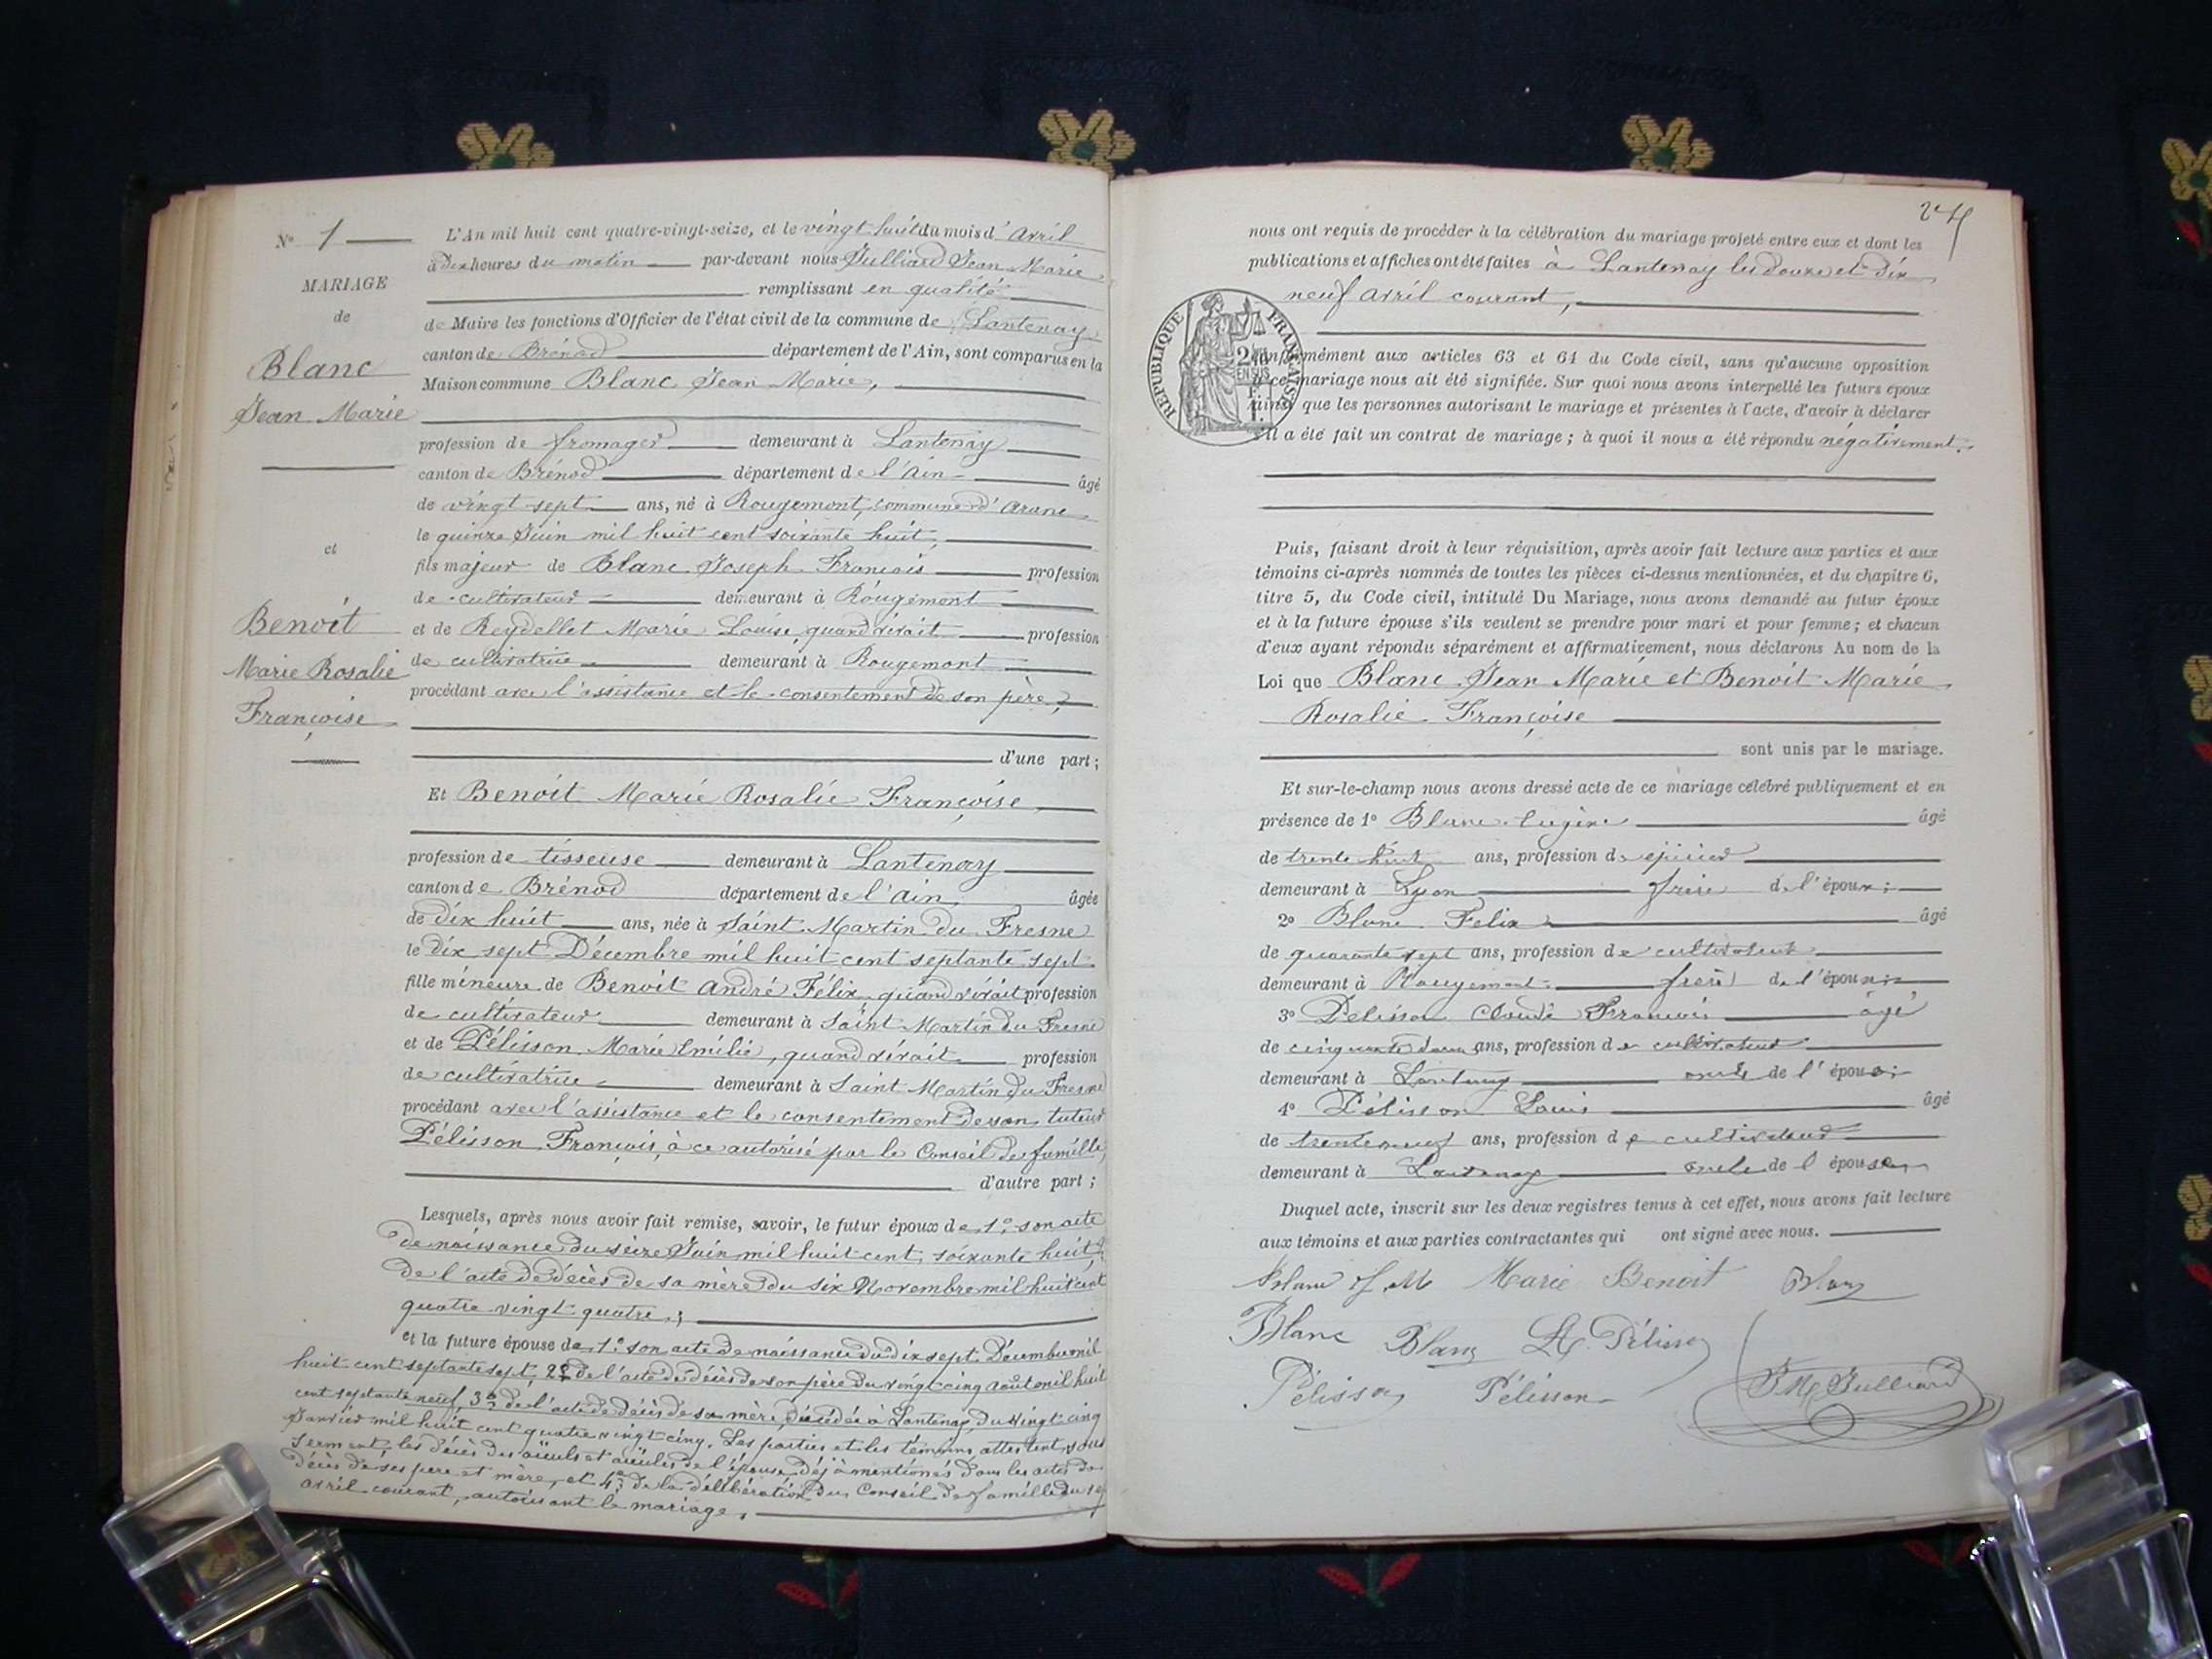 N° 1
MARIAGE
de
Blanc
Jean Marie
et
Benoit
Marie Rosalie
Françoise
L'An mil huit cent quatre-vingt-seize, et le vingt huit du mois d'Avril
à dix heures du matin par-devant nous Julliard Jean Marie
remplissant en qualité
de Maire les fonctions d'Officier de l'état civil de la commune de Lantenay
canton de Brénod département de l'Ain, sont comparus en la
Maison commune Blanc Jean Marie,
profession de fromager demeurant à Lantenay
canton de Brénod département de l'Ain âgé
de vingt sept ans, né à Rougemont, commune d'Aranc
le quinze Juin mil huit cent soixante huit,
fils majeur de Blanc Joseph François profession
de cultivateur demeurant à Rougemont
et de Reydellet Marie Louise, quand vivait profession
de cultivatrice demeurant à Rougemont
procédant avec l'assistance et le consentement de son père,
d'une part ;
Et Benoit Marie Rosalie Françoise,
profession de tisseuse demeurant à Lantenay
canton de Brénod département de l'Ain âgée
de dix huit ans, née à Saint Martin du Fresne
le dix sept Décembre mil huit cent septante sept
fille mineure de Benoit André Félix, quand vivait profession
de cultivateur demeurant à Saint Martin du Fresne
et de Pélisson Marie Emilie, quand vivait profession
de cultivatrice demeurant à Saint Martin du Fresne
procédant avec l'assistance et le consentement de son tuteur
Pélisson François, à ce autorisé par le Conseil de famille,
d'autre part ;
Lesquels, après nous avoir fait remise, savoir, le futur époux de 1° son acte
de naissance du seize Juin mil huit cent soixante huit, 2°
de l'acte de décès de sa mère du six Novembre mil huit cent
quatre vingt quatre ;
et la future épouse de 1° son acte de naissance du dix sept Décembre mil
huit cent septante sept, 2° de l'acte de décès de son père du vingt cinq août mil huit
cent septante neuf, 3° de l'acte de décès de sa mère, décédée à Lantenay, du vingt cinq
Janvier mil huit cent quatre vingt cinq. Les parties et les témoins attestent, sous
serment, les décès des aïeuls et aïeules de l'épouse, déjà mentionés dans les actes de
décès de ses père et mère, et 4° de la délibération du Conseil de famille du
avril courant, autorisant le mariage.
24
nous ont requis de procéder à la célébration du mariage projeté entre eux et dont les
publications et affiches ont été faites à Lantenay les douze et dix
neuf avril courant,
RÉPUBLIQUE FRANÇAISE
2
EN SUS
conformément aux articles 63 et 64 du Code civil, sans qu'aucune opposition
à ce mariage nous ait été signifiée. Sur quoi nous avons interpellé les futurs époux
ainsi que les personnes autorisant le mariage et présentes à l'acte, d'avoir à déclarer
s'il a été fait un contrat de mariage ; à quoi il nous a été répondu négativement.
Puis, faisant droit à leur réquisition, après avoir fait lecture aux parties et aux
témoins ci-après nommés de toutes les pièces ci-dessus mentionnées, et du chapitre 6,
titre 5, du Code civil, intitulé Du Mariage, nous avons demandé au futur époux
et à la future épouse s'ils veulent se prendre pour mari et pour femme ; et chacun
d'eux ayant répondu séparément et affirmativement, nous déclarons Au nom de la
Loi que Blanc Jean Marie et Benoit Marie
Rosalie Françoise
sont unis par le mariage.
Et sur-le-champ nous avons dressé acte de ce mariage célébré publiquement et en
présence de 1° Blanc Eugène âgé
de trente huit ans, profession d'épicier
demeurant à Lyon frère de l'époux ;
2° Blanc Felix âgé
de quarante sept ans, profession de cultivateur
demeurant à Rougemont frère de l'époux ;
3° Pelisson Claude François âgé
de cinquante deux ans, profession de cultivateur
demeurant à Lantenay oncle de l'épouse ;
4° Pélisson Louis âgé
de trente neuf ans, profession de cultivateur
demeurant à Lantenay oncle de l'épouse
Duquel acte, inscrit sur les deux registres tenus à cet effet, nous avons fait lecture
aux témoins et aux parties contractantes qui ont signé avec nous.
Blanc J. M Marie Benoit Blanc
Blanc Blanc Pélisson
Pélisson Pélisson J M Julliard